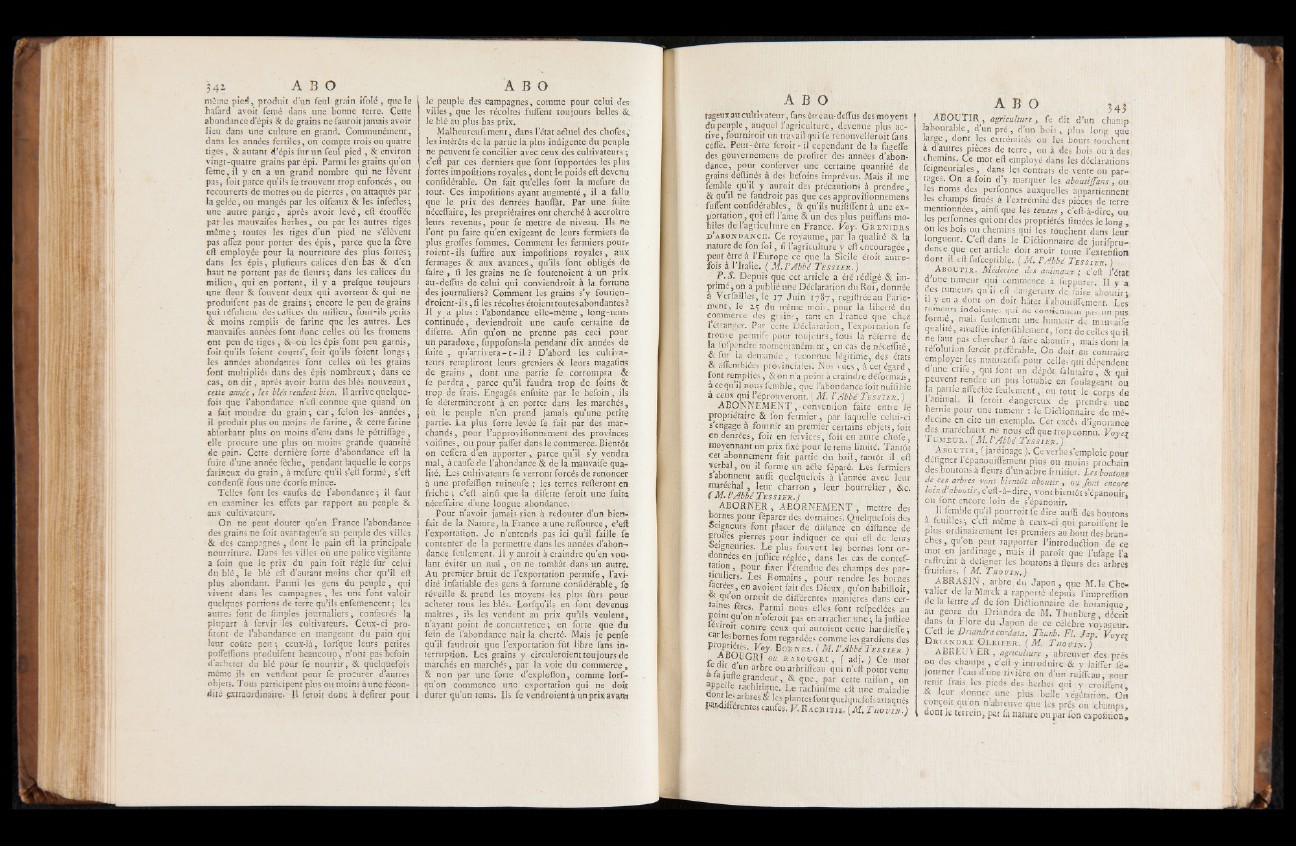 342 A B O
même pied, produit d'un seul grain isolé, que le
hasard avoit semé dans une bonne terre. Cette
abondance d'épis & de grains ne sauroit jamais avoir
lieu dans une culture en grand. Communément,
dans les années fertiles, on compte trois ou quatre
tiges, & autant d'épis sur un seul pied, & environ
vingt-quatre grains par épi. Parmi les grains qu'on
sème, il y en a un grand nombre qui ne lèvent
pas, soit parce qu'ils se trouvent trop enfoncés, ou
recouverts de mottes ou de pierres, ou attaqués par
la gelée, ou mangés par les oiseaux & les insectes;
une autre partie, après avoir levé, est étouffée
par les mauvaises herbes, ou par les autres tiges
même; toutes les tiges d'un pied ne s'élèvent
pas assez pour porter des épis, parce que la sève
est employée pour la nourriture des plus fortes;
dans les épis, plusieurs calices d'en bas & d'en
haut ne portent pas de fleurs; dans les calices du
milieu, qui en portent, il y a presque toujours
une fleur & souvent deux qui avortent & qui ne
produisent pas de grains; encore le peu de grains
qui résultent des calices du milieu, sont-ils petits
& moins remplis de farine que les autres. Les
mauvaises années sont donc celles où les fromens
ont peu de tiges, & où les épis sont peu garnis,
soit qu'ils soient courts, soit qu'ils soient longs;
les années abondantes sont celles où les grains
sont multipliés dans des épis nombreux; dans ce
cas, on dit, après avoir battu des blés nouveaux,
cette année, les blés rendent bien. Il arrive quelque-
fois que l'abondance n'est connue que quand on
a fait moudre du grain; car, selon les années,
il produit plus ou moins de farine, & cette farine
absorbant plus ou moins d'eau dans le pétrissage,
elle procure une plus ou moins grande quantité
de pain. Cette dernière sorte d'abondance est la
suite d'une année sèche, pendant laquelle le corps
farineux du grain, à mesure qu'il s'est formé, s'est
condensé sous une écorse mince.
Telles sont les causes de l'abondance; il faut
en examiner les effets par rapport au peuple &
aux cultivateurs.
On ne peut douter qu'en France l'abondance
des grains ne soit avantageuse au peuple des villes
& des campagnes, dont le pain est la principale
nourriture. Dans les villes où une police vigilante
a soin que le prix du pain soit réglé sur celui
du blé, le blé est d'autant moins cher qu'il est
plus abondant. Parmi les gens du peuple, qui
vivent dans les campagnes, les uns font valoir
quelques portions de terre qu'ils ensemencent; les
autres sont de simples journaliers, consacrés la
plupart à servir les cultivateurs. Ceux-ci pro-
fitent de l'abondance en mangeant du pain qui
leur coûte peu; ceux-là, lorsque leurs petites
possessions produisent beaucoup, n'ont pas besoin
d'acheter du blé pour se nourrir, & quelquefois
même ils en vendent pour se procurer d'autres
objets. Tous participent plus ou moins à une fécon-
dité extraordinaire. Il seroit donc à desirer pour
A B O
le peuple des campagnes, comme pour celui des
villes, que les récoltes fussent toujours belles &
le blé au plus bas prix.
Malheureusement, dans l'état actuel des choses,
les intérêts de la partie la plus indigente du peuple
ne peuvent se concilier avec ceux des cultivateurs;
c'est par ces derniers que sont supportées les plus
fortes impositions royales, dont le poids est devenu
considérable. On sait qu'elles sont la mesure de
tout. Ces impositions ayant augmenté, il a fallu
que le prix des denrées haussât. Par une suite
nécessaire, les propriétaires ont cherché à accroître
leurs revenus, pour se mettre de niveau. Ils ne
l'ont pu faire qu'en exigeant de leurs fermiers de
plus grosses sommes. Comment les fermiers pour-
roient-ils suffire aux impositions royales, aux
fermages & aux avances, qu'ils sont obligés de
faire, si les grains ne se soutenoient à un prix
au-dessus de celui qui conviendroit à la fortune
des journaliers? Comment les grains s'y soutien-
droient-ils, si les récoltes étoient toutes abondantes?
Il y a plus: l'abondance elle-même, long-tems
continuée, deviendroit une cause certaine de
disette. Afin qu'on ne prenne pas ceci pour
un paradoxe, supposons-la pendant dix années de
suite, qu'arrivera-t-il? D'abord les cultiva-
teurs rempliront leurs greniers & leurs magasins
de grains, dont une partie se corrompra &
se perdra, parce qu'il faudra trop de soins &
trop de frais. Engagés ensuite par le besoin, ils
se détermineront à en porter dans les marchés,
où le peuple n'en prend jamais qu'une petite
partie. La plus forte levée se fait par des mar-
chands, pour l'approvisionnement des provinces
voisines, ou pour passer dans le commerce. Bientôt
on cessera d'en apporter, parce qu'il s'y vendra
mal, à cause de l'abondance & de la mauvaise qua-
lité. Les cultivateurs se verront forcés de renoncer
à une profession ruineuse; les terres resteront en
friche; c'est ainsi que la disette seroit une suite
nécessaire d'une longue abondance.
Pour n'avoir jamais rien à redouter d'un bien-
fait de la Nature, la France a une ressource, c'est
l'exportation. Je n'entends pas ici qu'il faille se
contenter de la permettre dans les années d'abon-
dance seulement. Il y auroit à craindre qu'en vou-
lant éviter un mal, on ne tombât dans un autre.
Au premier bruit de l'exportation permise, l'avi-
dité insatiable des gens à fortune considérable, se
réveille & prend les moyens les plus sûrs pour
acheter tous les blés. Lorsqu'ils en sont devenus
maîtres, ils les vendent au prix qu'ils veulent,
n'ayant point de concurrence; en sorte que du
sein de l'abondance naît la cherté. Mais je pense
qu'il faudroit que l'exportation fût libre sans in-
terruption. Les grains y circuleroient toujours de
marchés en marchés, par la voie du commerce,
& non par une sorte d'explosion, comme lors-
qu'on commence une exportation qui ne doit
durer qu'un tems. Ils se vendroient à un prix avan-
A B O
tageux au cultivateur, sans être au-dessus des moyens
du peuple, auquel l'agriculture, devenue plus ac-
tive, fourniroit un travail qui se renouvelleroit sans
cesse. Peut-être seroit-il cependant de la sagesse
des gouvernemens de profiter des années d'abon-
dance, pour conserver une certaine quantité de
grains destinés à des besoins imprévus. Mais il me
semble qu'il y auroit des précautions à prendre,
& qu'il ne faudroit pas que ces approvisionnemens
fussent considérables, & qu'ils nuisissent à une ex-
portation, qui est l'ame & un des plus puissans mo-
biles de l'agriculture en France. Voy. GRENIERS
D'ABONDANCE. Ce royaume, par la qualité & la
nature de son sol, si l'agriculture y est encouragée,
peut être à l'Europe ce que la Sicile étoit autre-
fois à l'Italie. (M. l'Abbé TESSIER.)
P. S. Depuis que cet article a été rédigé & im-
primé, on a publié une Déclaration du Roi, donnée
à Versailles, le 17 Juin 1787, registrée au Parle-
ment, le 25 du même mois, pour la liberté du
commerce des grains, tant en France que chez
l'étranger. Par cette Déclaration, l'exportation se
trouve permise pour toujours, sous la réserve de
la suspendre momentanément, en cas de nécessité,
& sur la demande, reconnue légitime, des états
& assemblées provinciales. Nos vues, à cet égard,
sont remplies, & on n'a point à craindre désormais,
à ce qu'il nous semble, que l'abondance soit nuisible
à ceux qui l'éprouveront. (M. l'Abbé TESSIER.)
ABONNEMENT, convention faite entre le
propriétaire & son fermier, par laquelle celui-ci
s'engage à fournir au premier certains objets, soit
en denrées, soit en services, soit en autre chose,
moyennant un prix fixé pour le tems limité. Tantôt
cet abonnement fait partie du bail, tantôt il est
verbal, ou il forme un acte séparé. Les fermiers
s'abonnent aussi quelquefois à l'année avec leur
maréchal, leur charron, leur bourrelier, &c.
(M. l'Abbé TESSIER.)
ABORNER, ABORNEMENT, mettre des
bornes pour séparer des domaines. Quelquefois des
Seigneurs font placer de distance en distance de
grosses pierres pour indiquer ce qui est de leurs
Seigneuries. Le plus souvent les bornes sont or-
données en justice réglée, dans les cas de contes-
tation, pour fixer l'étendue des champs des par-
ticuliers. Les Romains, pour rendre les bornes
sacrées, en avoient fait des Dieux, qu'on habilloit,
& qu'on ornoit de différentes manieres dans cer-
taines fêtes. Parmi nous elles sont respectées au
point qu'on n'oseroit pas en arracher une; la justice
séviroit contre ceux qui auroient cette hardiesse,
car les bornes sont regardées comme les gardiens des
propriétés. Voy. BORNES. (M. l'Abbé TESSIER.)
ABOUGRI ou RABOUGRI, (adj.) Ce mot
se dit d'un arbre ou arbrisseau qui n'est point venu
à sa juste grandeur, & que, par cette raison, on
appelle rachitique. Le rachitisme est une maladie
dont les arbres & les plantes sont quelquefois attaqués
par différentes causes. V. RACHITIS. (M. THOUIN.)
A B O 343
ABOUTIR, agriculture, se dit d'un champ
labourable, d'un pré, d'un bois, plus long que
large, dont les extrémités ou les bouts touchent
à d'autres pièces de terre, ou à des bois ou à des
chemins. Ce mot est employé dans les déclarations
seigneuriales, dans les contrats de vente ou par-
tages. On a soin d'y marquer les aboutissans, ou
les noms des personnes auxquelles appartiennent
les champs situés à l'extrémité des pièces de terre
mentionnées, ainsi que les tenans, c'est-à-dire, ou
les personnes qui ont des propriétés situées le long,
ou les bois ou chemins qui les touchent dans leur
longueur. C'est dans le Dictionnaire de jurispru-
dence que cet article doit avoir toute l'extension
dont il est susceptible. (M. l'Abbé TESSIER.)
ABOUTIR. Médecine des animaux; c'est l'état
d'une tumeur qui commence à suppurer. Il y a
des tumeurs qu'il est dangereux de faire aboutir;
il y en a dont on doit hâter l'aboutissement. Les
tumeurs indolentes qui ne contiennent pas un pus
formé, mais seulement une humeur de mauvaise
qualité, amassée insensiblement, sont de celles qu'il
ne faut pas chercher à faire aboutir, mais dont la
résolution seroit préférable. On doit au contraire
employer les maturatifs pour celles qui dépendent
d'une crise, qui font un dépôt salutaire, & qui
peuvent rendre un pus louable en soulageant ou
la partie affectée seulement, ou tout le corps de
l'animal. Il seroit dangereux de prendre une
hernie pour une tumeur: le Dictionnaire de mé-
decine en cite un exemple. Cet excès d'ignorance
des maréchaux ne nous est que trop connu. Voyez
TUMEUR. (M. l'Abbé TESSIER.)
ABOUTIR, (jardinage). Ce verbe s'emploie pour
désigner l'épanouissement plus ou moins prochain
des boutons à fleurs d'un arbre fruitier. Les boutons
de ces arbres vont bientôt aboutir, ou sont encore
loin d'aboutir, c'est-à-dire, vont bientôt s'épanouir,
ou sont encore loin de s'épanouir.
Il semble qu'il pourroit se dire aussi des boutons
à feuilles, c'est même à ceux-ci qui paroissent le
plus ordinairement les premiers au bout des bran-
ches, qu'on peut rapporter l'introduction de ce
mot en jardinage, mais il paroît que l'usage l'a
restreint à désigner les boutons à fleurs des arbres
fruitiers. (M. THOUIN.)
ABRASIN, arbre du Japon, que M. le Che-
valier de la Marck a rapporté depuis l'impression
de la lettre A de son Dictionnaire de botanique,
au genre du Driandra de M. Thunberg, décrit
dans la Flore du Japon de ce célèbre voyageur.
C'est le Driandra cordata. Thunb. Fl. Jap. Voyez
DRIANDRE OLEIFER. (M. THOUIN.)
ABREUVER, agriculture, abreuver des prés
ou des champs, c'est y introduire & y laisser sé-
journer l'eau d'une rivière ou d'un ruisseau, pour
tenir frais les pieds des herbes qui y croissent,
& leur donner une plus belle végétation. On
conçoit qu'on n'abreuve que les prés ou champs,
dont le terrein, par sa nature ou par son exposition,